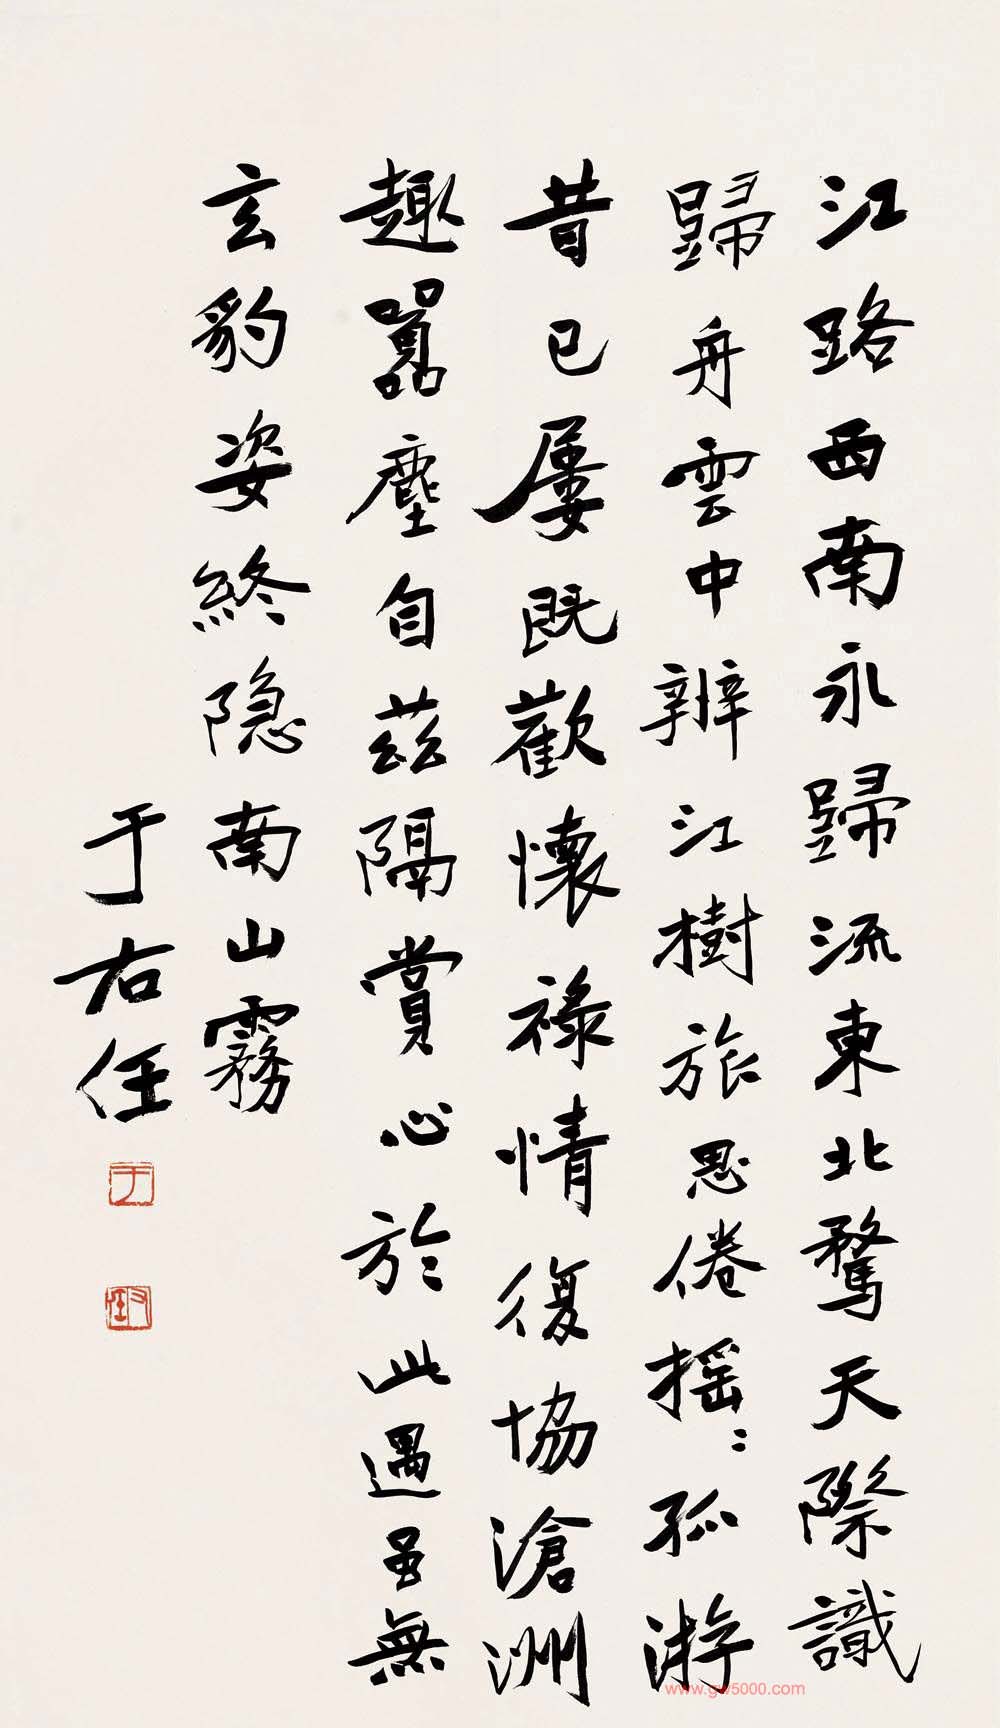 江路西南永歸流東北騖天際識
歸舟雲中辨江樹旅思倦搖〻孤游
昔已屢既歡懷祿情復協滄洲
趣囂塵自茲隔賞心於此遇虽無
玄豹姿終隐南山霧
于右任
于
右任
www.gw5000.com